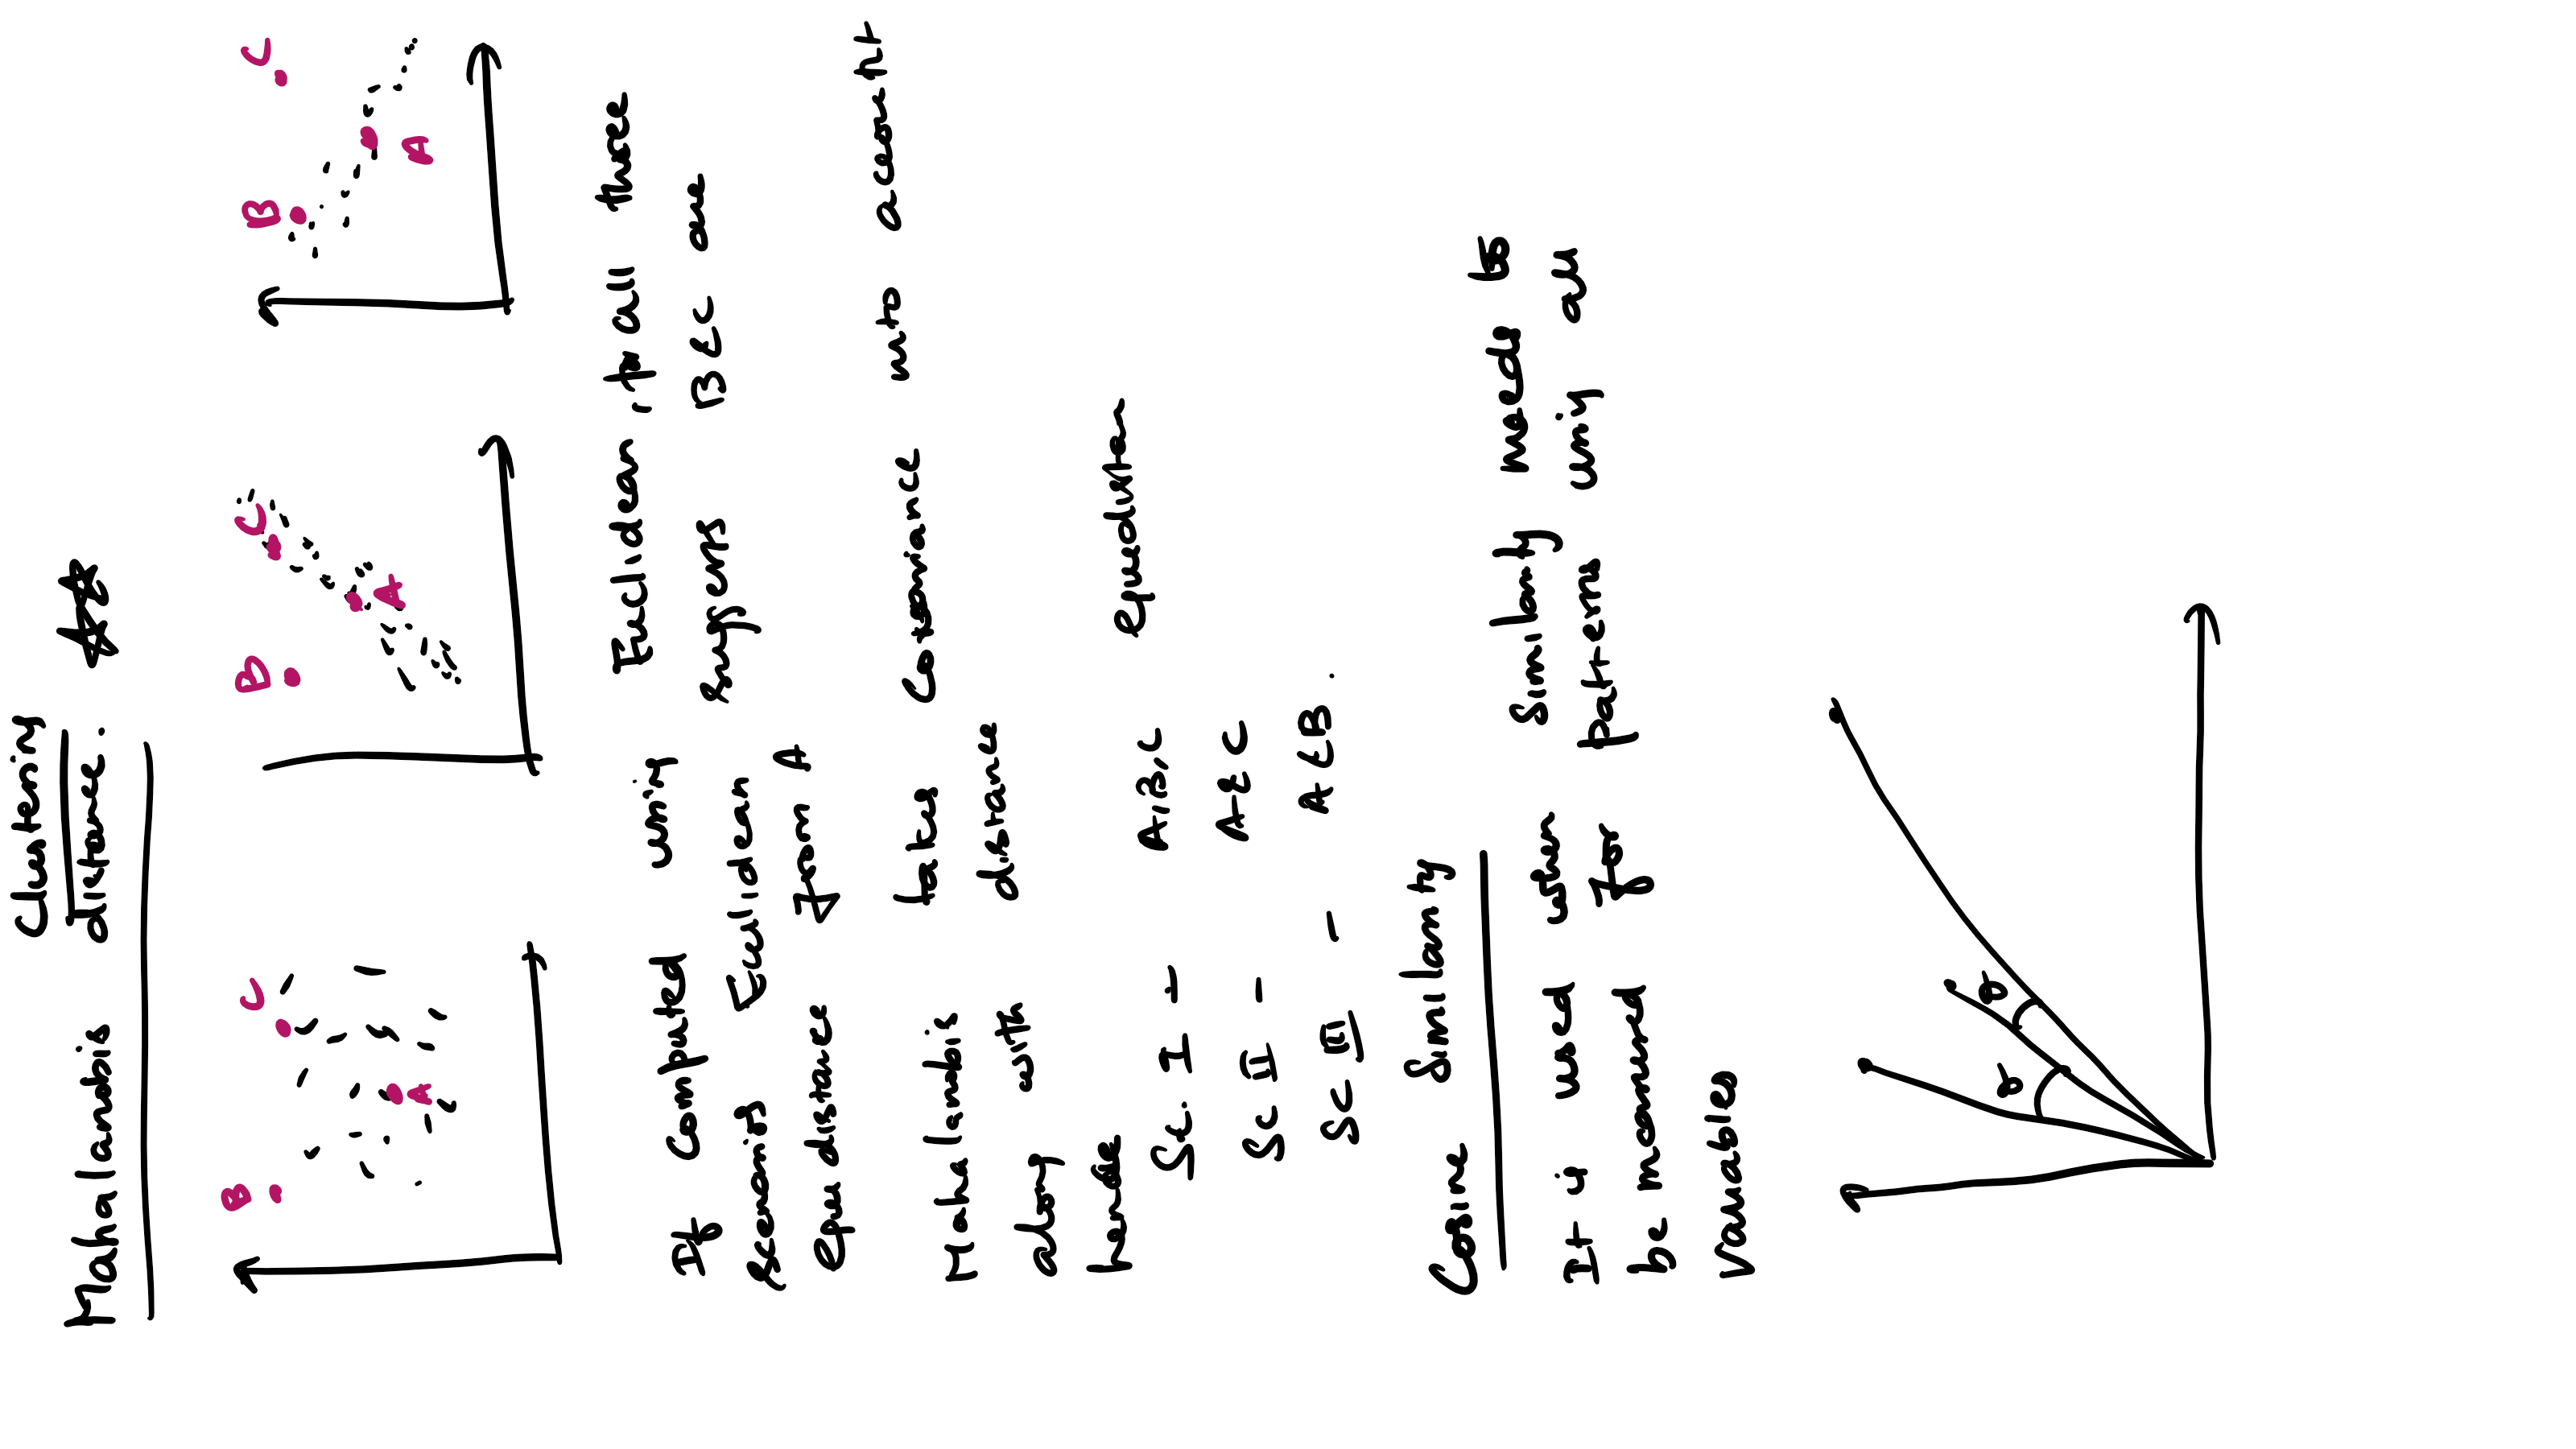 Clustering
Mahallanobis distance.
B C A
B C A
B C A
If Computed using Euclidean, for all three
Scenarios Euclidean suggests B & C are
equidistance from A
Mahallanobis takes Covariance into account
along with distance
hence
Sc. I - A,B,C equedistan
Sc II - A & C
Sc III - A & B.
Cosine Similarity
It is used when Similarity needs to
be measured for patterns using all
variables